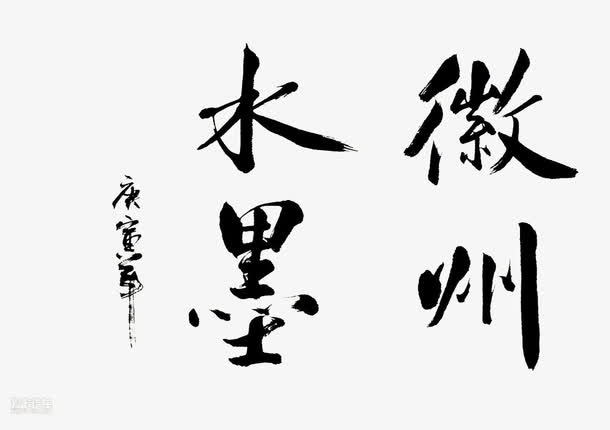 徽州
水墨
庚寅年